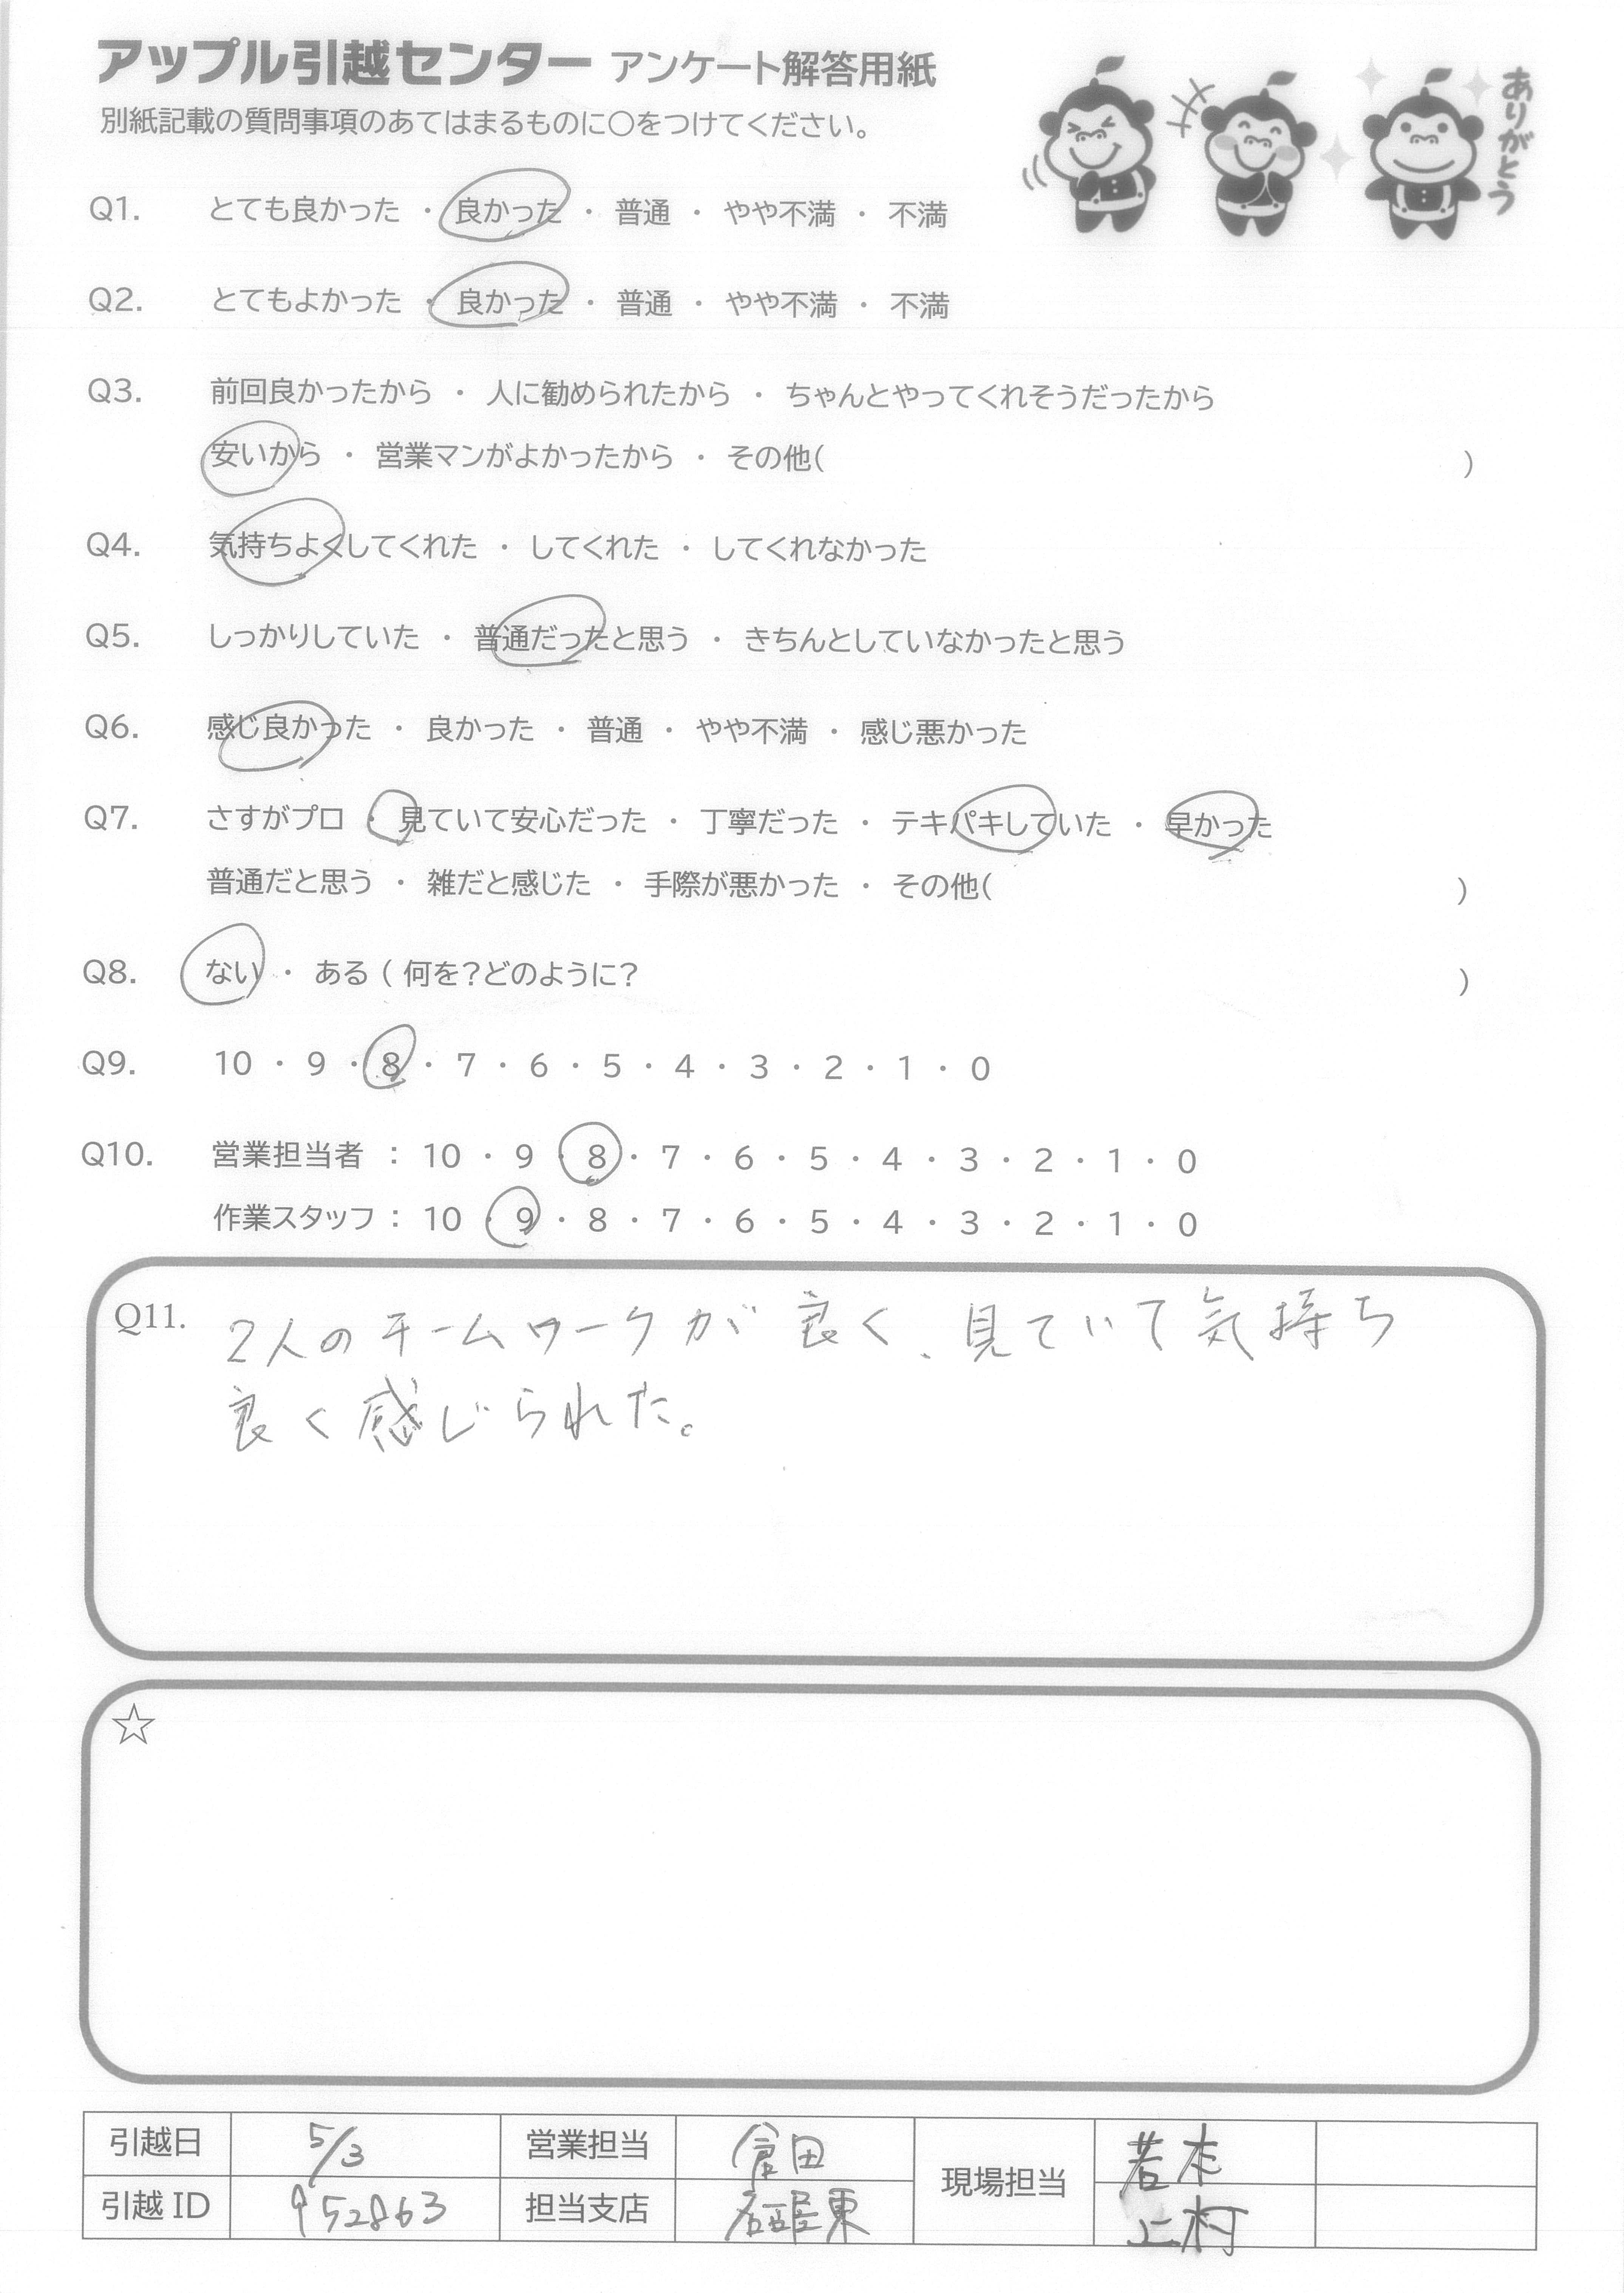 アップル引越センター アンケート解答用紙
別紙記載の質問事項のあてはまるものに○をつけてください。
ありがとう
Q1. とても良かった ・ 良かった ・ 普通 ・ やや不満 ・ 不満
Q2. とてもよかった ・ 良かった ・ 普通 ・ やや不満 ・ 不満
Q3. 前回良かったから ・ 人に勧められたから ・ ちゃんとやってくれそうだったから
安いから ・ 営業マンがよかったから ・ その他( )
Q4. 気持ちよくしてくれた ・ してくれた ・ してくれなかった
Q5. しっかりしていた ・ 普通だったと思う ・ きちんとしていなかったと思う
Q6. 感じ良かった ・ 良かった ・ 普通 ・ やや不満 ・ 感じ悪かった
Q7. さすがプロ ・ 見ていて安心だった ・ 丁寧だった ・ テキパキしていた ・ 早かった
普通だと思う ・ 雑だと感じた ・ 手際が悪かった ・ その他( )
Q8. ない ・ ある ( 何を?どのように? )
Q9. 10 ・ 9 ・ 8 ・ 7 ・ 6 ・ 5 ・ 4 ・ 3 ・ 2 ・ 1 ・ 0
Q10. 営業担当者 : 10 ・ 9 ・ 8 ・ 7 ・ 6 ・ 5 ・ 4 ・ 3 ・ 2 ・ 1 ・ 0
作業スタッフ : 10 ・ 9 ・ 8 ・ 7 ・ 6 ・ 5 ・ 4 ・ 3 ・ 2 ・ 1 ・ 0
Q11. 2人のチームワークが良く、見ていて気持ち
良く感じられた。
☆
引越日 5/3 営業担当 倉田 現場担当 若本
引越ID 952863 担当支店 名古屋東 上村